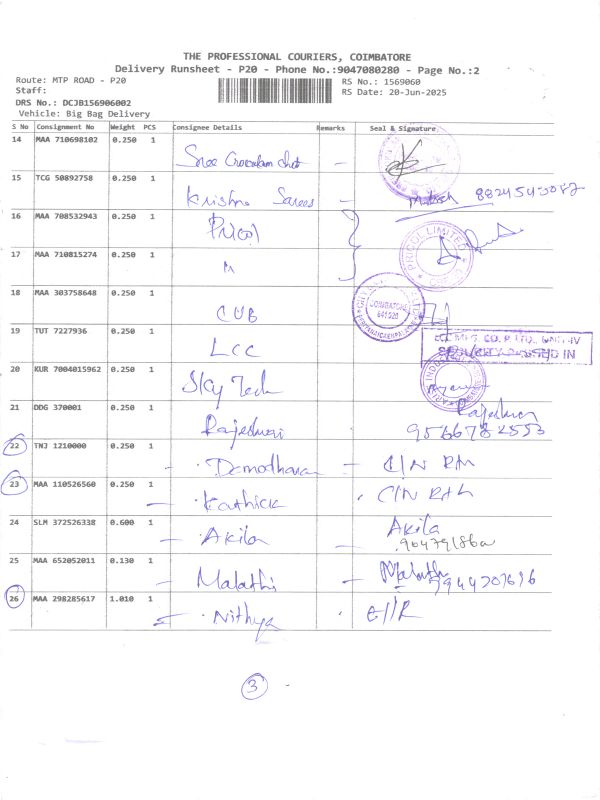 THE PROFESSIONAL COURIERS, COIMBATORE
Delivery Runsheet - P20 - Phone No.:9047080280 - Page No.:2
Route: MTP ROAD - P20
RS No.: 1569060
Staff:
RS Date: 20-Jun-2025
DRS No.: DCJB156906002
Vehicle: Big Bag Delivery
S No Consignment No Weight PCS Consignee Details Remarks Seal & Signature
14 MAA 710698102 0.250 1 Sree
15 TCG 50892758 0.250 1 Krishna Sarees
16 MAA 708532943 0.250 1 Pricol
PRICOL LIMITED
17 MAA 710815274 0.250 1 "
18 MAA 303758648 0.250 1 CUB
COIMBATORE
641 020
19 TUT 7227936 0.250 1 LCC
20 KUR 7004015962 0.250 1 Sky Tech
21 DDG 370001 0.250 1 Rajeshwari
22 TNJ 1210000 0.250 1 - Damodharan - C/N
23 MAA 110526560 0.250 1 - Karthick C/N
24 SLM 372526338 0.600 1 - Akila - Akila
25 MAA 652052011 0.130 1 - Malathi - Malathi
26 MAA 298285617 1.010 1 Nithya
3 -